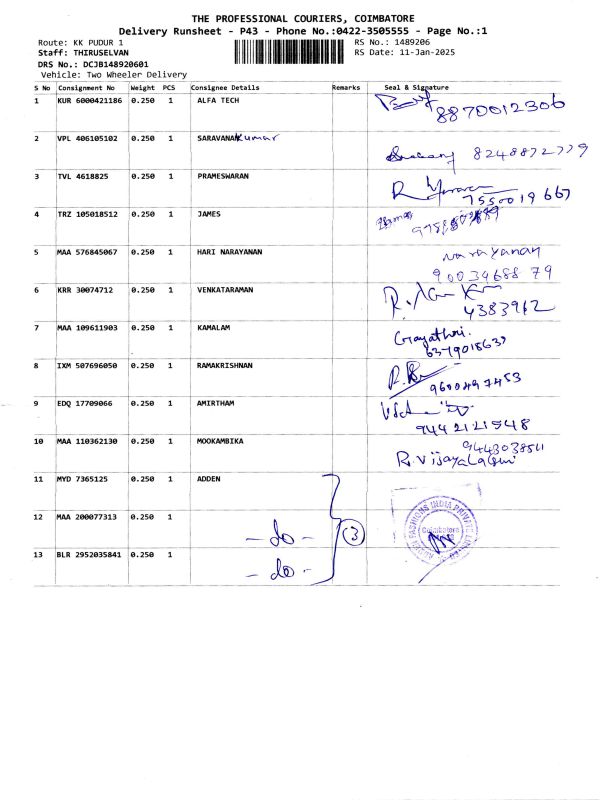 THE PROFESSIONAL COURIERS, COIMBATORE
Delivery Runsheet - P43 - Phone No.:0422-3505555 - Page No.:1
Route: KK PUDUR 1 RS No.: 1489206
Staff: THIRUSELVAN RS Date: 11-Jan-2025
DRS No.: DCJB148920601
Vehicle: Two Wheeler Delivery
S No Consignment No Weight PCS Consignee Details Remarks Seal & Signature
1 KUR 6000421186 0.250 1 ALFA TECH
8870012306
2 VPL 406105102 0.250 1 SARAVANAKumar
8248872779
3 TVL 4618825 0.250 1 PRAMESWARAN
7550019667
4 TRZ 105018512 0.250 1 JAMES
5 MAA 576845067 0.250 1 HARI NARAYANAN Narayanan
9003468879
6 KRR 30074712 0.250 1 VENKATARAMAN
4383962
7 MAA 109611903 0.250 1 KAMALAM Gayathri.
8 IXM 507696050 0.250 1 RAMAKRISHNAN
9600497453
9 EDQ 17709066 0.250 1 AMIRTHAM
9442121548
10 MAA 110362130 0.250 1 MOOKAMBIKA 9443038511
R. Vijayalakshmi
11 MYD 7365125 0.250 1 ADDEN
12 MAA 200077313 0.250 1
- do - 3
13 BLR 2952035841 0.250 1
- do -
FASHIONS INDIA PRIVATE
Coimbatore